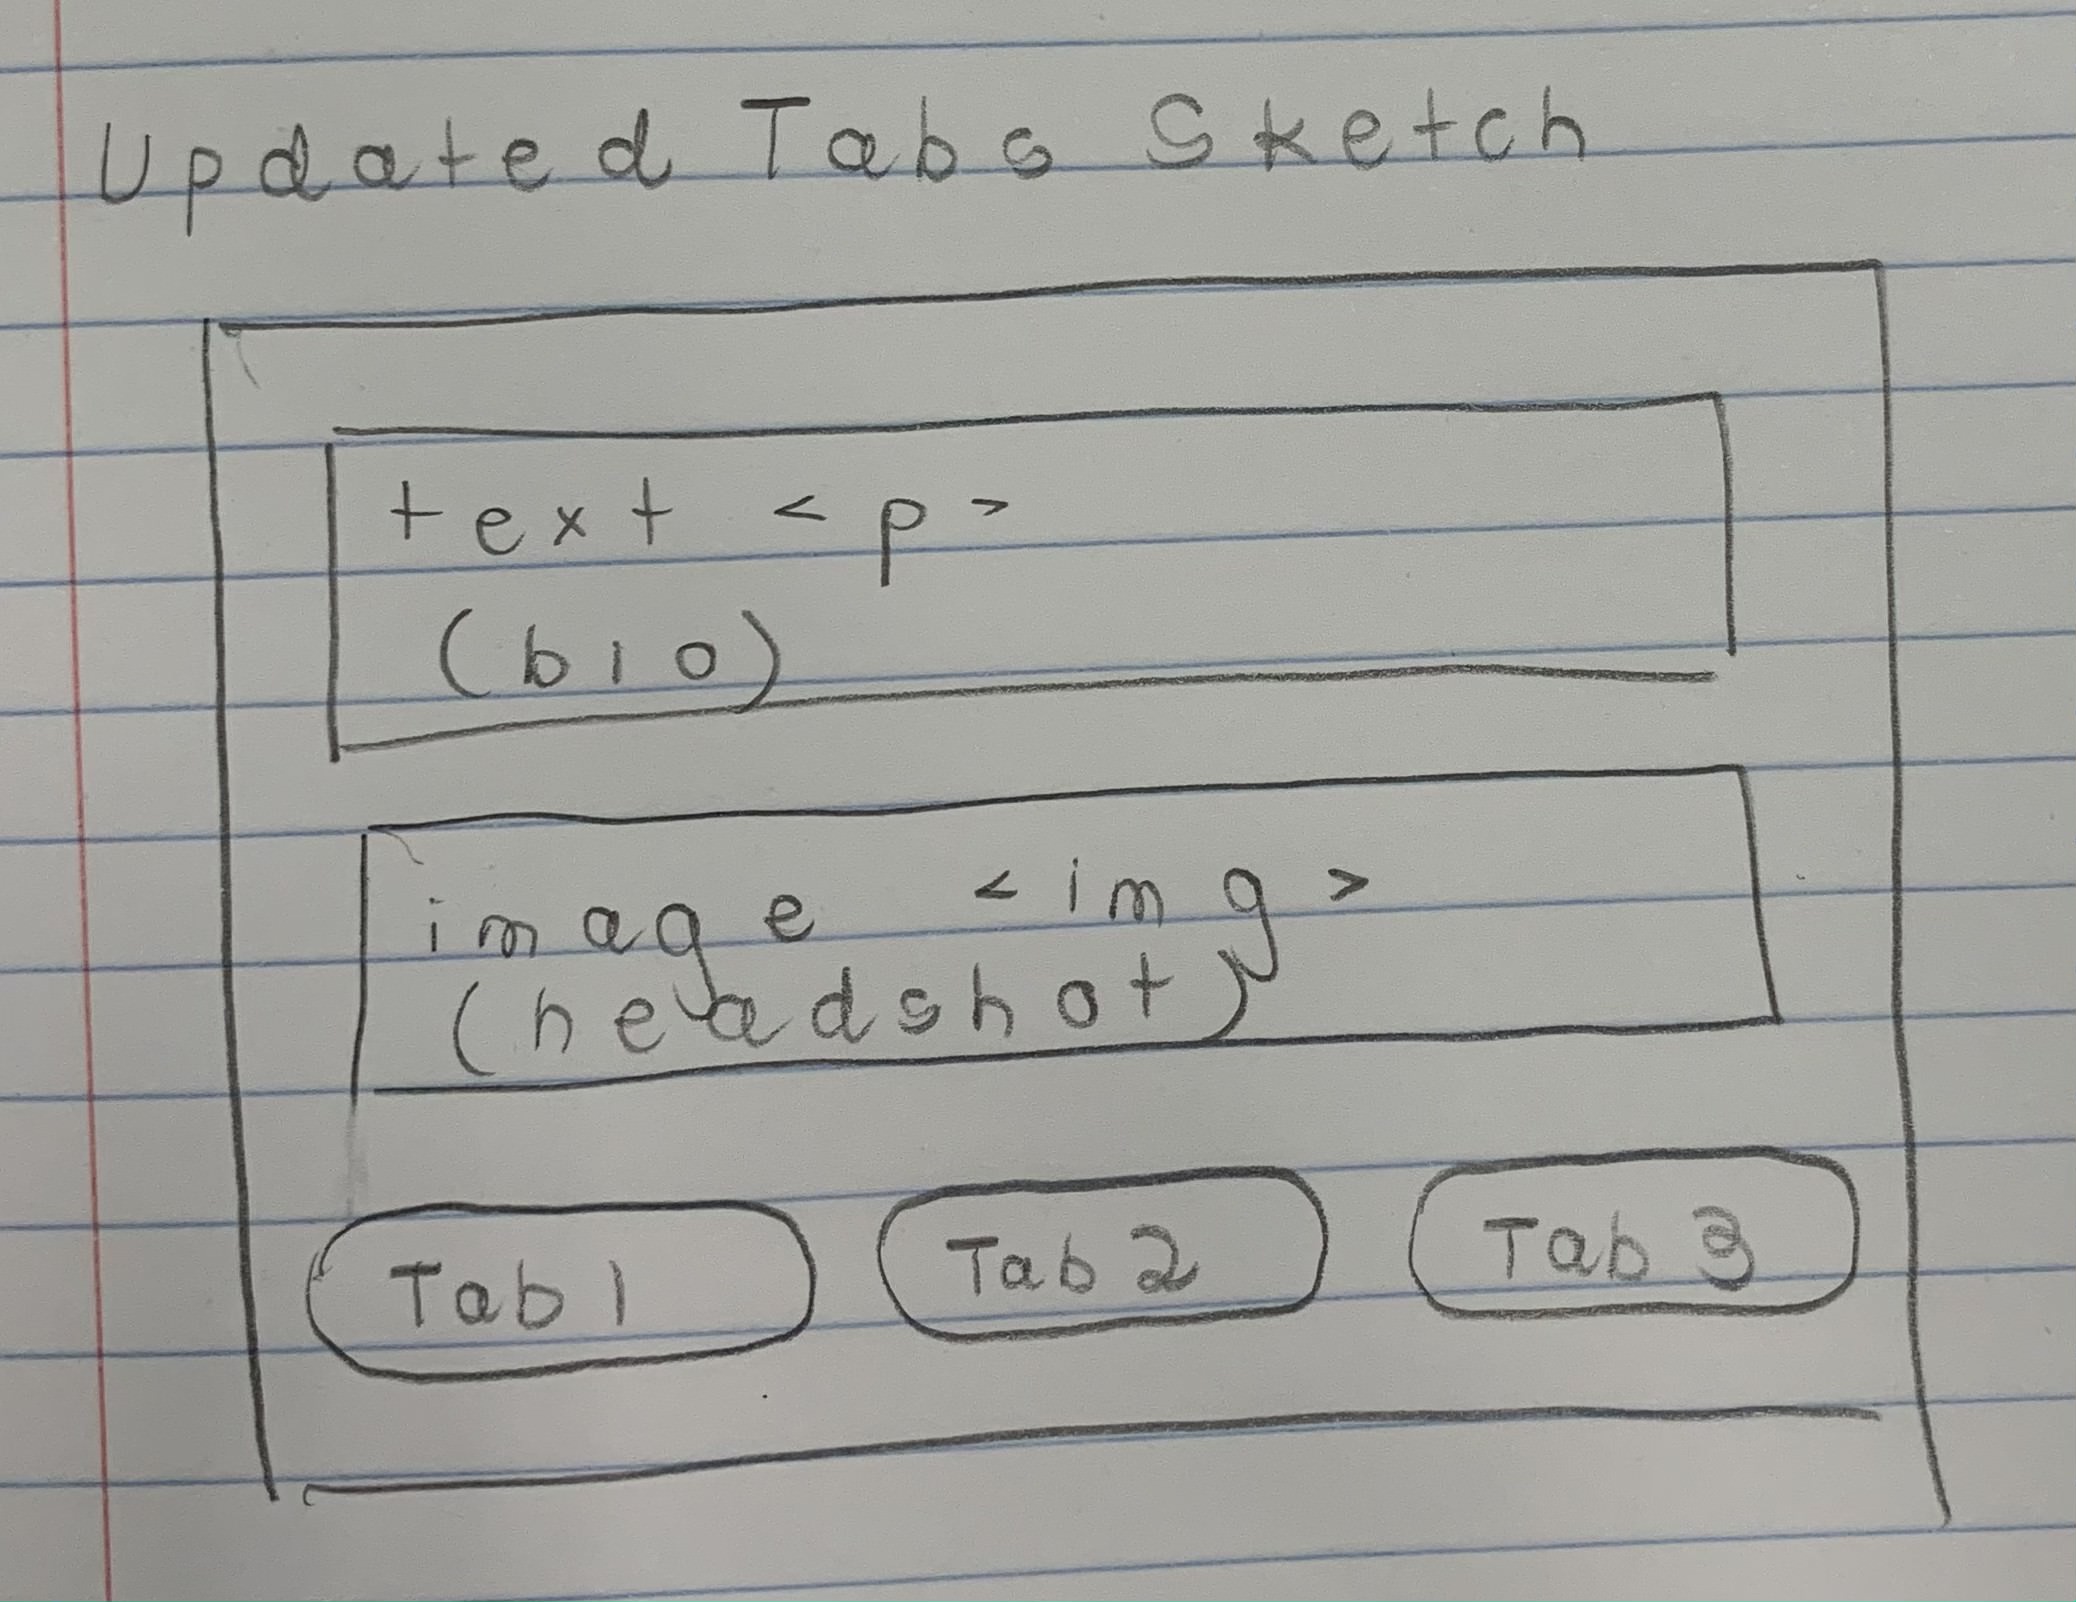 Updated Tabs Sketch
text <p>
(bio)
image <img>
(headshot)
Tab 1 Tab 2 Tab 3